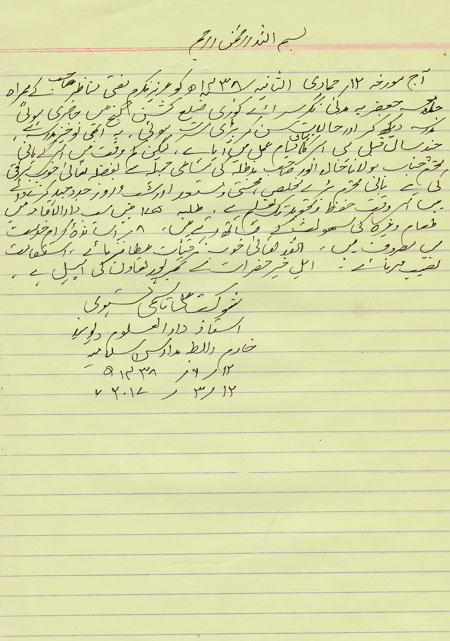 بسم اللہ الرحمن الرحیم
آج مورخہ ۱۲ جمادی الثانیہ ۱۴۳۸ھ کو عزیز مکرم مفتی صاحب کے ہمراہ
جامعہ جعفریہ مدنی نگر سرائے ضلع گنج میں حاضری ہوئی
مدرسہ دیکھ کر اور حالات سن کر بڑی مسرت ہوئی، یہ ابھی نوخیز ادارہ ہے
چند سال قبل ہی اس کا قیام عمل میں آیا ہے، لیکن کم وقت میں اس کے بانی
محترم جناب مولانا خالد انور صاحب مدظلہ کی مساعی جمیلہ سے بفضلہ تعالیٰ خوب ترقی
کی ہے بانی محترم بڑے مخلص، محنتی و مستعد اور شب و روز جدوجہد کرنے والے
ہیں اس وقت حفظ و تجوید تک تعلیم ہے۔ طلبہ ہیں دارالاقامہ میں
طعام وغیرہ کی سہولت کے ساتھ رہتے ہیں، ۸ اساتذہ کرام خدمت
میں مصروف ہیں، اللہ تعالیٰ خوب ترقیات عطا فرمائے، استقامت
نصیب فرمائے۔ اہل خیر حضرات سے بھرپور تعاون کی اپیل ہے۔
شوکت علی قاسمی بستوی
استاذ دار العلوم دیوبند
خادم رابطہ مدارس اسلامیہ
۱۲ / ۶ / ۱۴۳۸ ھ
۱۲ / ۳ / ۲۰۱۷ ء